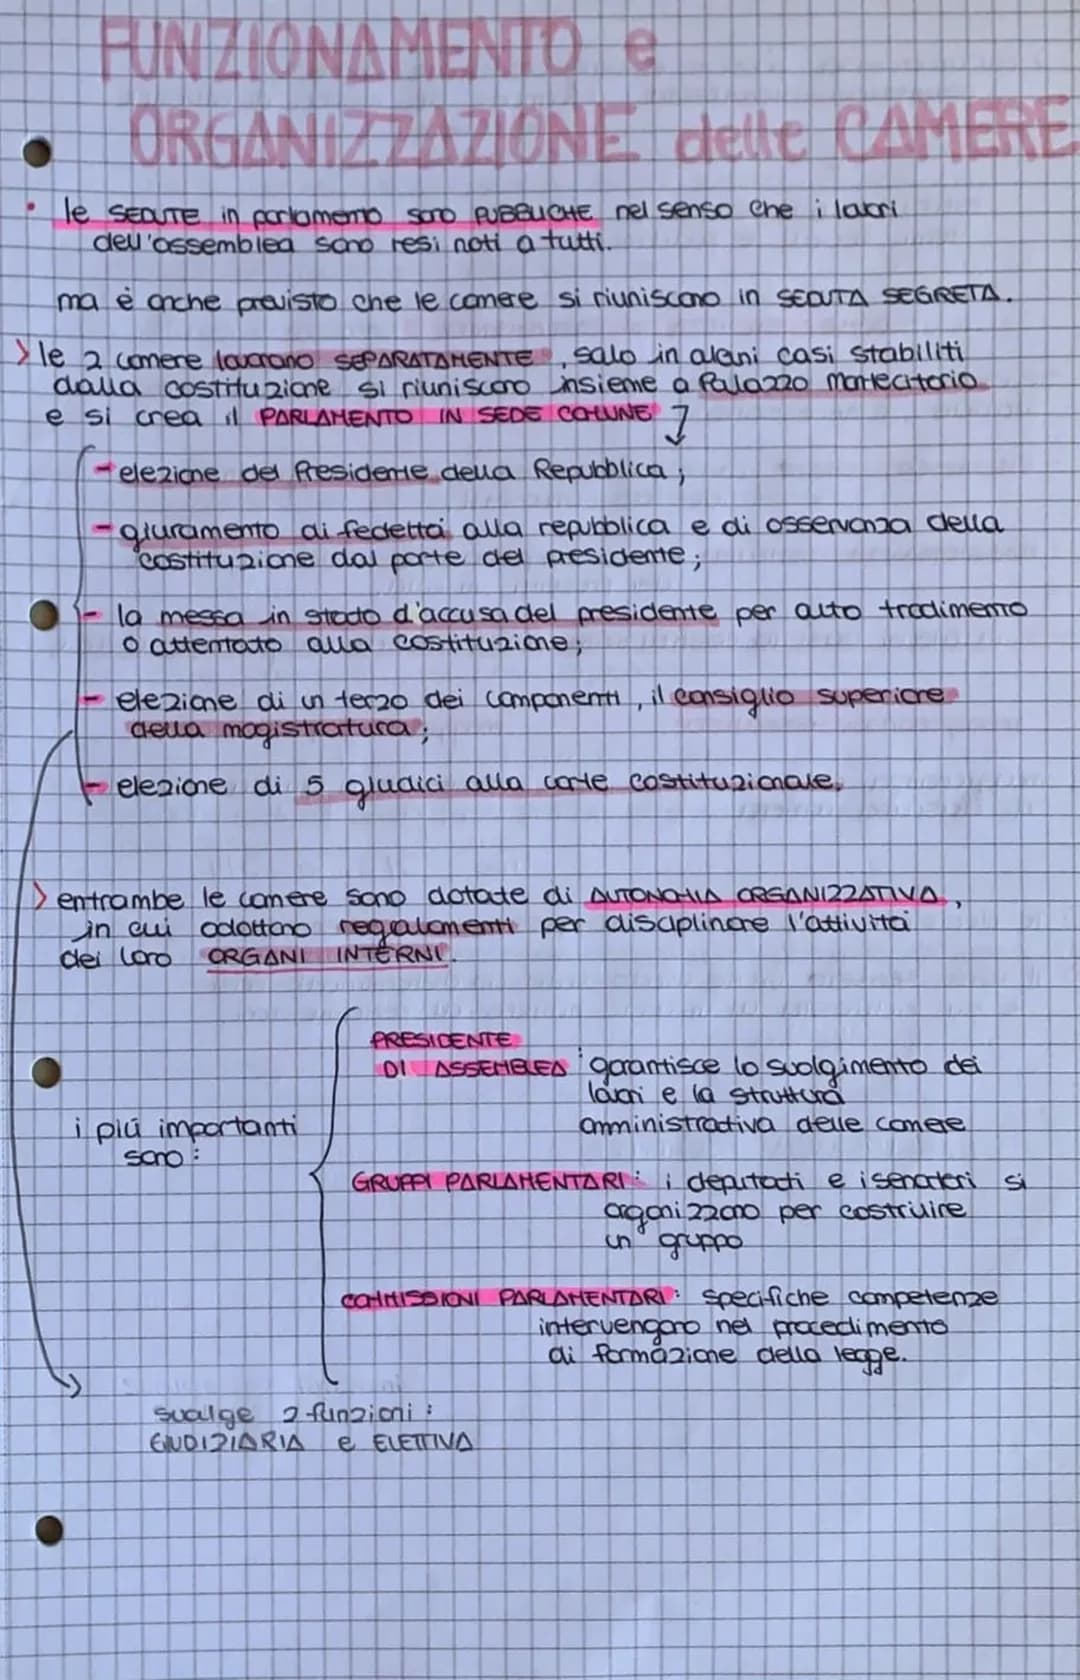 FUNZIONAMENTO e
ORGANIZZAZIONE delle CAMERE
• le SEDUTE in parlamento sono PUBBLICHE nel senso che i lavori
dell'assemblea sono resi noti a tutti.
ma è anche previsto che le camere si riuniscano in SEDUTA SEGRETA.
> le 2 camere lavorano SEPARATAMENTE, salo in alcuni casi stabiliti
dalla costituzione si riuniscono insieme a Palazzo Montecitorio
e si crea il PARLAMENTO IN SEDE COMUNE
- elezione del Presidente della Repubblica;
- giuramento di fedeltà alla repubblica e di osservanza della
costituzione dal parte del presidente;
- la messa in stato d'accusa del presidente per alto tradimento
o attentato alla costituzione;
- elezione di un terzo dei componenti, il consiglio superiore
della magistratura;
- elezione di 5 giudici alla corte costituzionale.
> entrambe le camere sono dotate di AUTONOMIA ORGANIZZATIVA,
in cui adottano regolamenti per disciplinare l'attività
dei loro ORGANI INTERNI.
i più importanti
sono:
PRESIDENTE
DI ASSEMBLEA: garantisce lo svolgimento dei
lavori e la struttura
amministrativa delle camere
GRUPPI PARLAMENTARI: i deputati e i senatori si
organizzano per costruire
un gruppo
COMMISSIONI PARLAMENTARI: specifiche competenze
intervengono nel procedimento
di formazione della legge.
svolge 2 funzioni:
GIUDIZIARIA e ELETTIVA